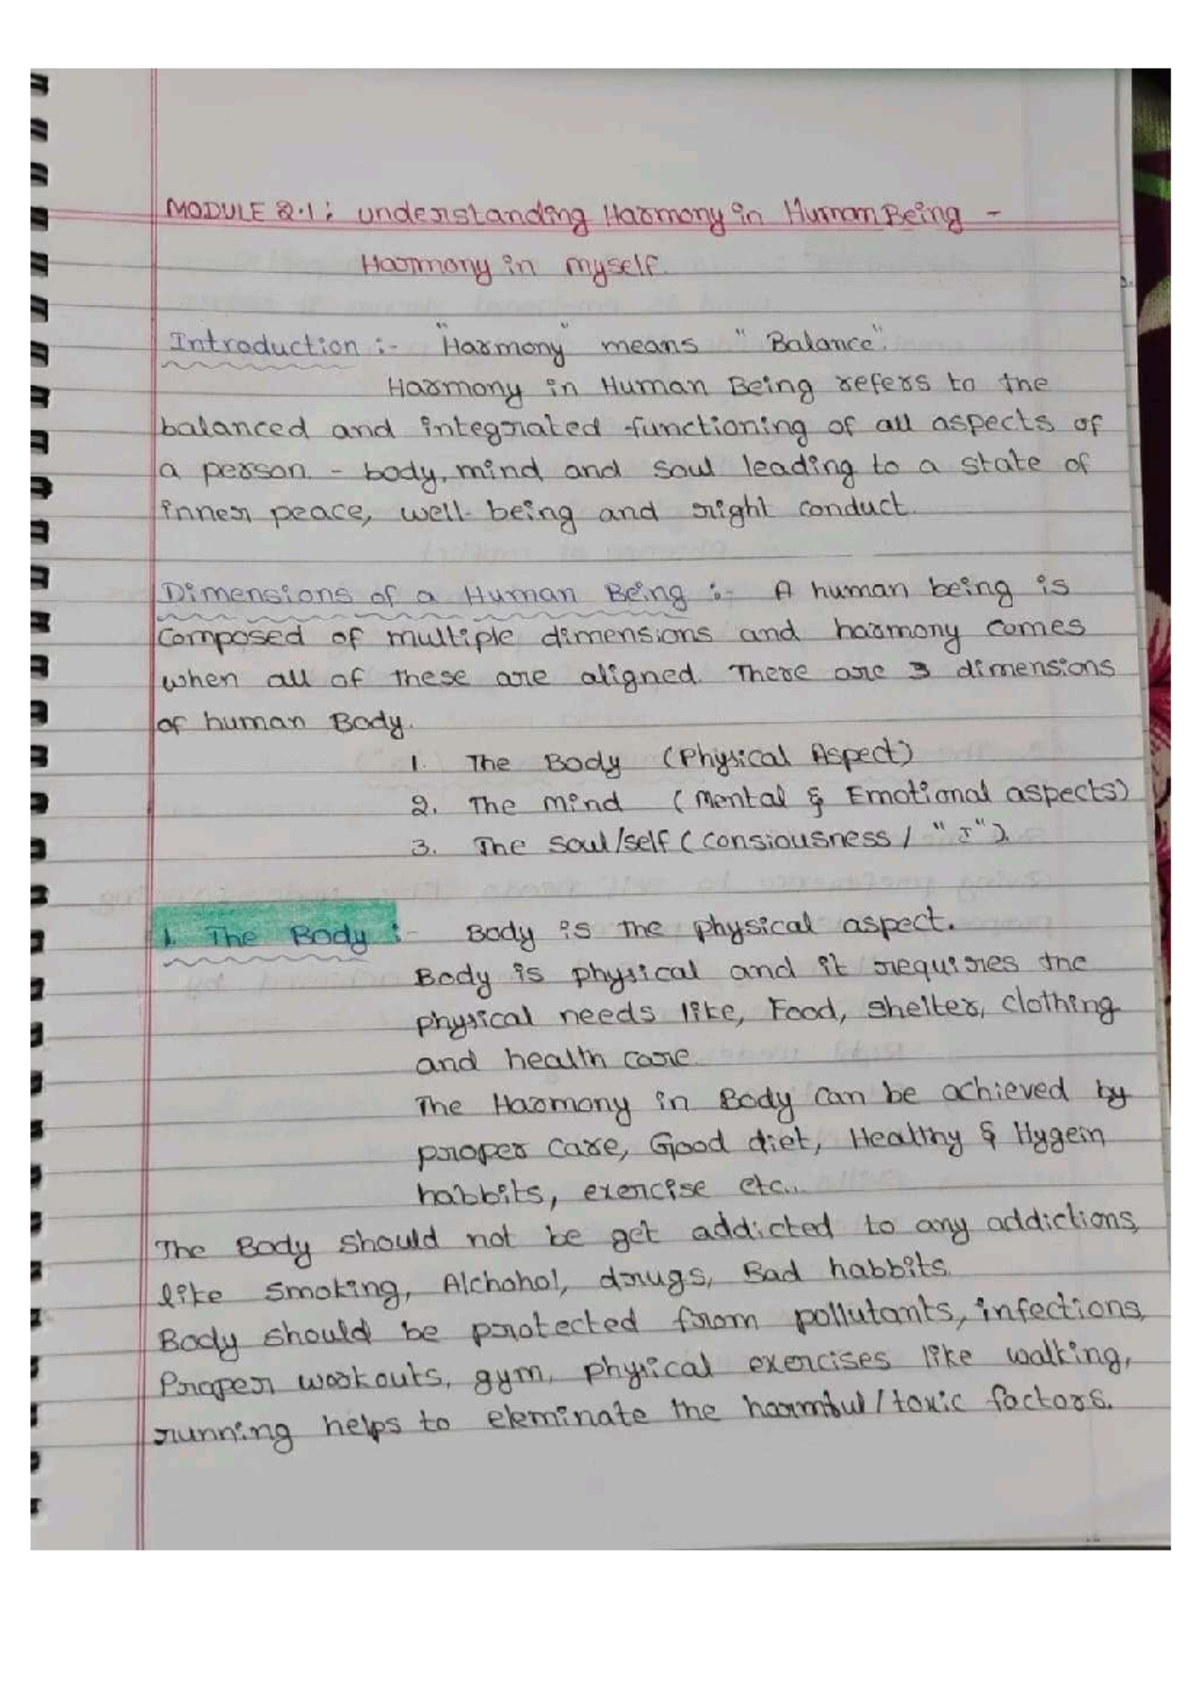 MODULE 2.1: understanding Harmony in Human Being -
Harmony in myself.
Introduction :- "Harmony" means "Balance".
Harmony in Human Being refers to the
balanced and integrated functioning of all aspects of
a person. - body, mind and soul leading to a state of
inner peace, well-being and right conduct.
Dimensions of a Human Being :- A human being is
composed of multiple dimensions and harmony comes
when all of these are aligned. There are 3 dimensions
of human Body.
1. The Body (Physical Aspect)
2. The mind (Mental & Emotional aspects)
3. The soul/self (consiousness / "I").
1. The Body :- Body is the physical aspect.
Body is physical and it requires the
physical needs like, Food, shelter, clothing
and health care.
The Harmony in Body can be achieved by
proper care, Good diet, Healthy & Hygein
habbits, exercise etc...
The Body should not be get addicted to any addictions,
like smoking, Alchohol, drugs, Bad habbits.
Body should be protected from pollutants, infections,
Proper workouts, gym, physical exercises like walking,
running helps to eleminate the harmful/toxic factors.